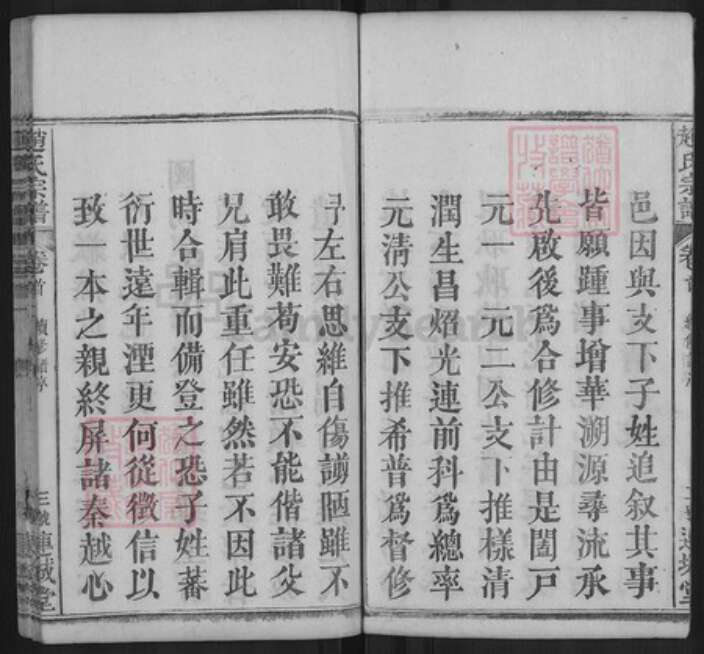 趙氏宗譜
邑因與支下子姓追叙其事
皆願踵事增華溯源尋流承
先啟後爲合修計由是闔戸
元一 元二公支下推樣清
潤生昌炤光連前科爲總率
元淸公支下推希普爲督修
予左右思維自傷謭陋雖不
敢畏難苟安恐不能偕諸父
兄肩此重任雖然若不因此
時合輯而備登之恐子姓蕃
衍世遠年湮更何從徵信以
致一本之親終屏諸秦越心
趙氏宗譜 卷首 續修譜序 三號 連城堂